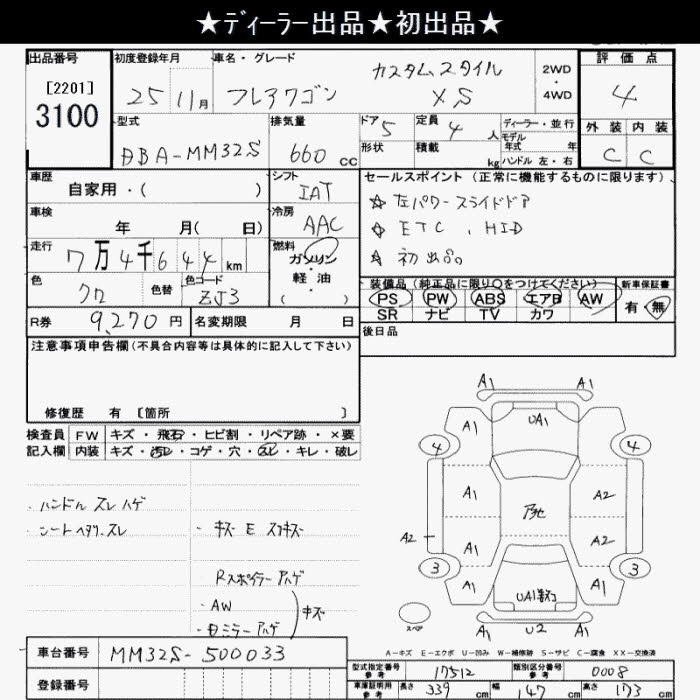 ★ディーラー出品★初出品★
出品番号
[2201]
3100
初度登録年月
25 11月
車名・グレード
フレアワゴン
カスタムスタイル
XS
2WD
・
4WD
評価点
4
外装 内装
C C
型式
DBA-MM32S
排気量
660 cc
ドア 5
形状
定員 4 人
積載 kg
ディーラー・並行
モデル
年式 年
ハンドル 左・右
車歴
自家用・( )
シフト
IAT
車検
年 月( 日)
冷房
AAC
走行
7万4千644km
燃料
ガソリン
・
軽油
( )
色
クロ
色替
色コード
ZJ3
R券 9,270円
名変期限 月 日
セールスポイント (正常に機能するものに限ります)
☆ 左パワースライドドア
☆ ETC 、HID
☆ 初出品。
装備品(純正品に限り○をつけてください)
PS PW ABS エアB AW
SR ナビ TV カワ
新車保証書
有・無
後日品
注意事項申告欄(不具合内容等は具体的に記入して下さい)
修復歴 有 [箇所 ]
検査員
記入欄
FW キズ・飛石・ヒビ割・リペア跡・×要
内装 キズ・汚レ・コゲ・穴・スレ・キレ・破レ
・ハンドル スレ ハゲ
・シートヘタリ、スレ
・キズ E スリキズ
Rスポイラー ハゲ
・AW
キズ
A1 A1
A1 UA1
4 4
A1 A2
A2 A1 A2
3 3
A1 UA1 A1
スペア
U2 A1
A-キズ E-エクボ U-凹み W-補修跡 S-サビ C-腐食 XX-交換済
車台番号 MM32S-500033
登録番号
型式指定番号
参考
17512
類別区分番号
参考
0008
車庫証明用
参考
長さ 339 cm
幅 147 cm
高さ 173 cm